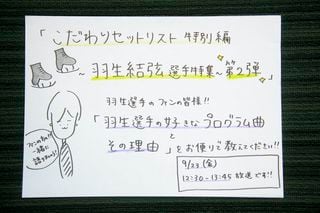 「こだわりセットリスト 特別編
~羽生結弦選手特集~第2弾」
羽生選手のファンの皆様!!
「羽生選手の好きなプログラム曲
と
その理由」をお便りで教えてください!!
9/23(金)
12:30-13:45 放送です!!